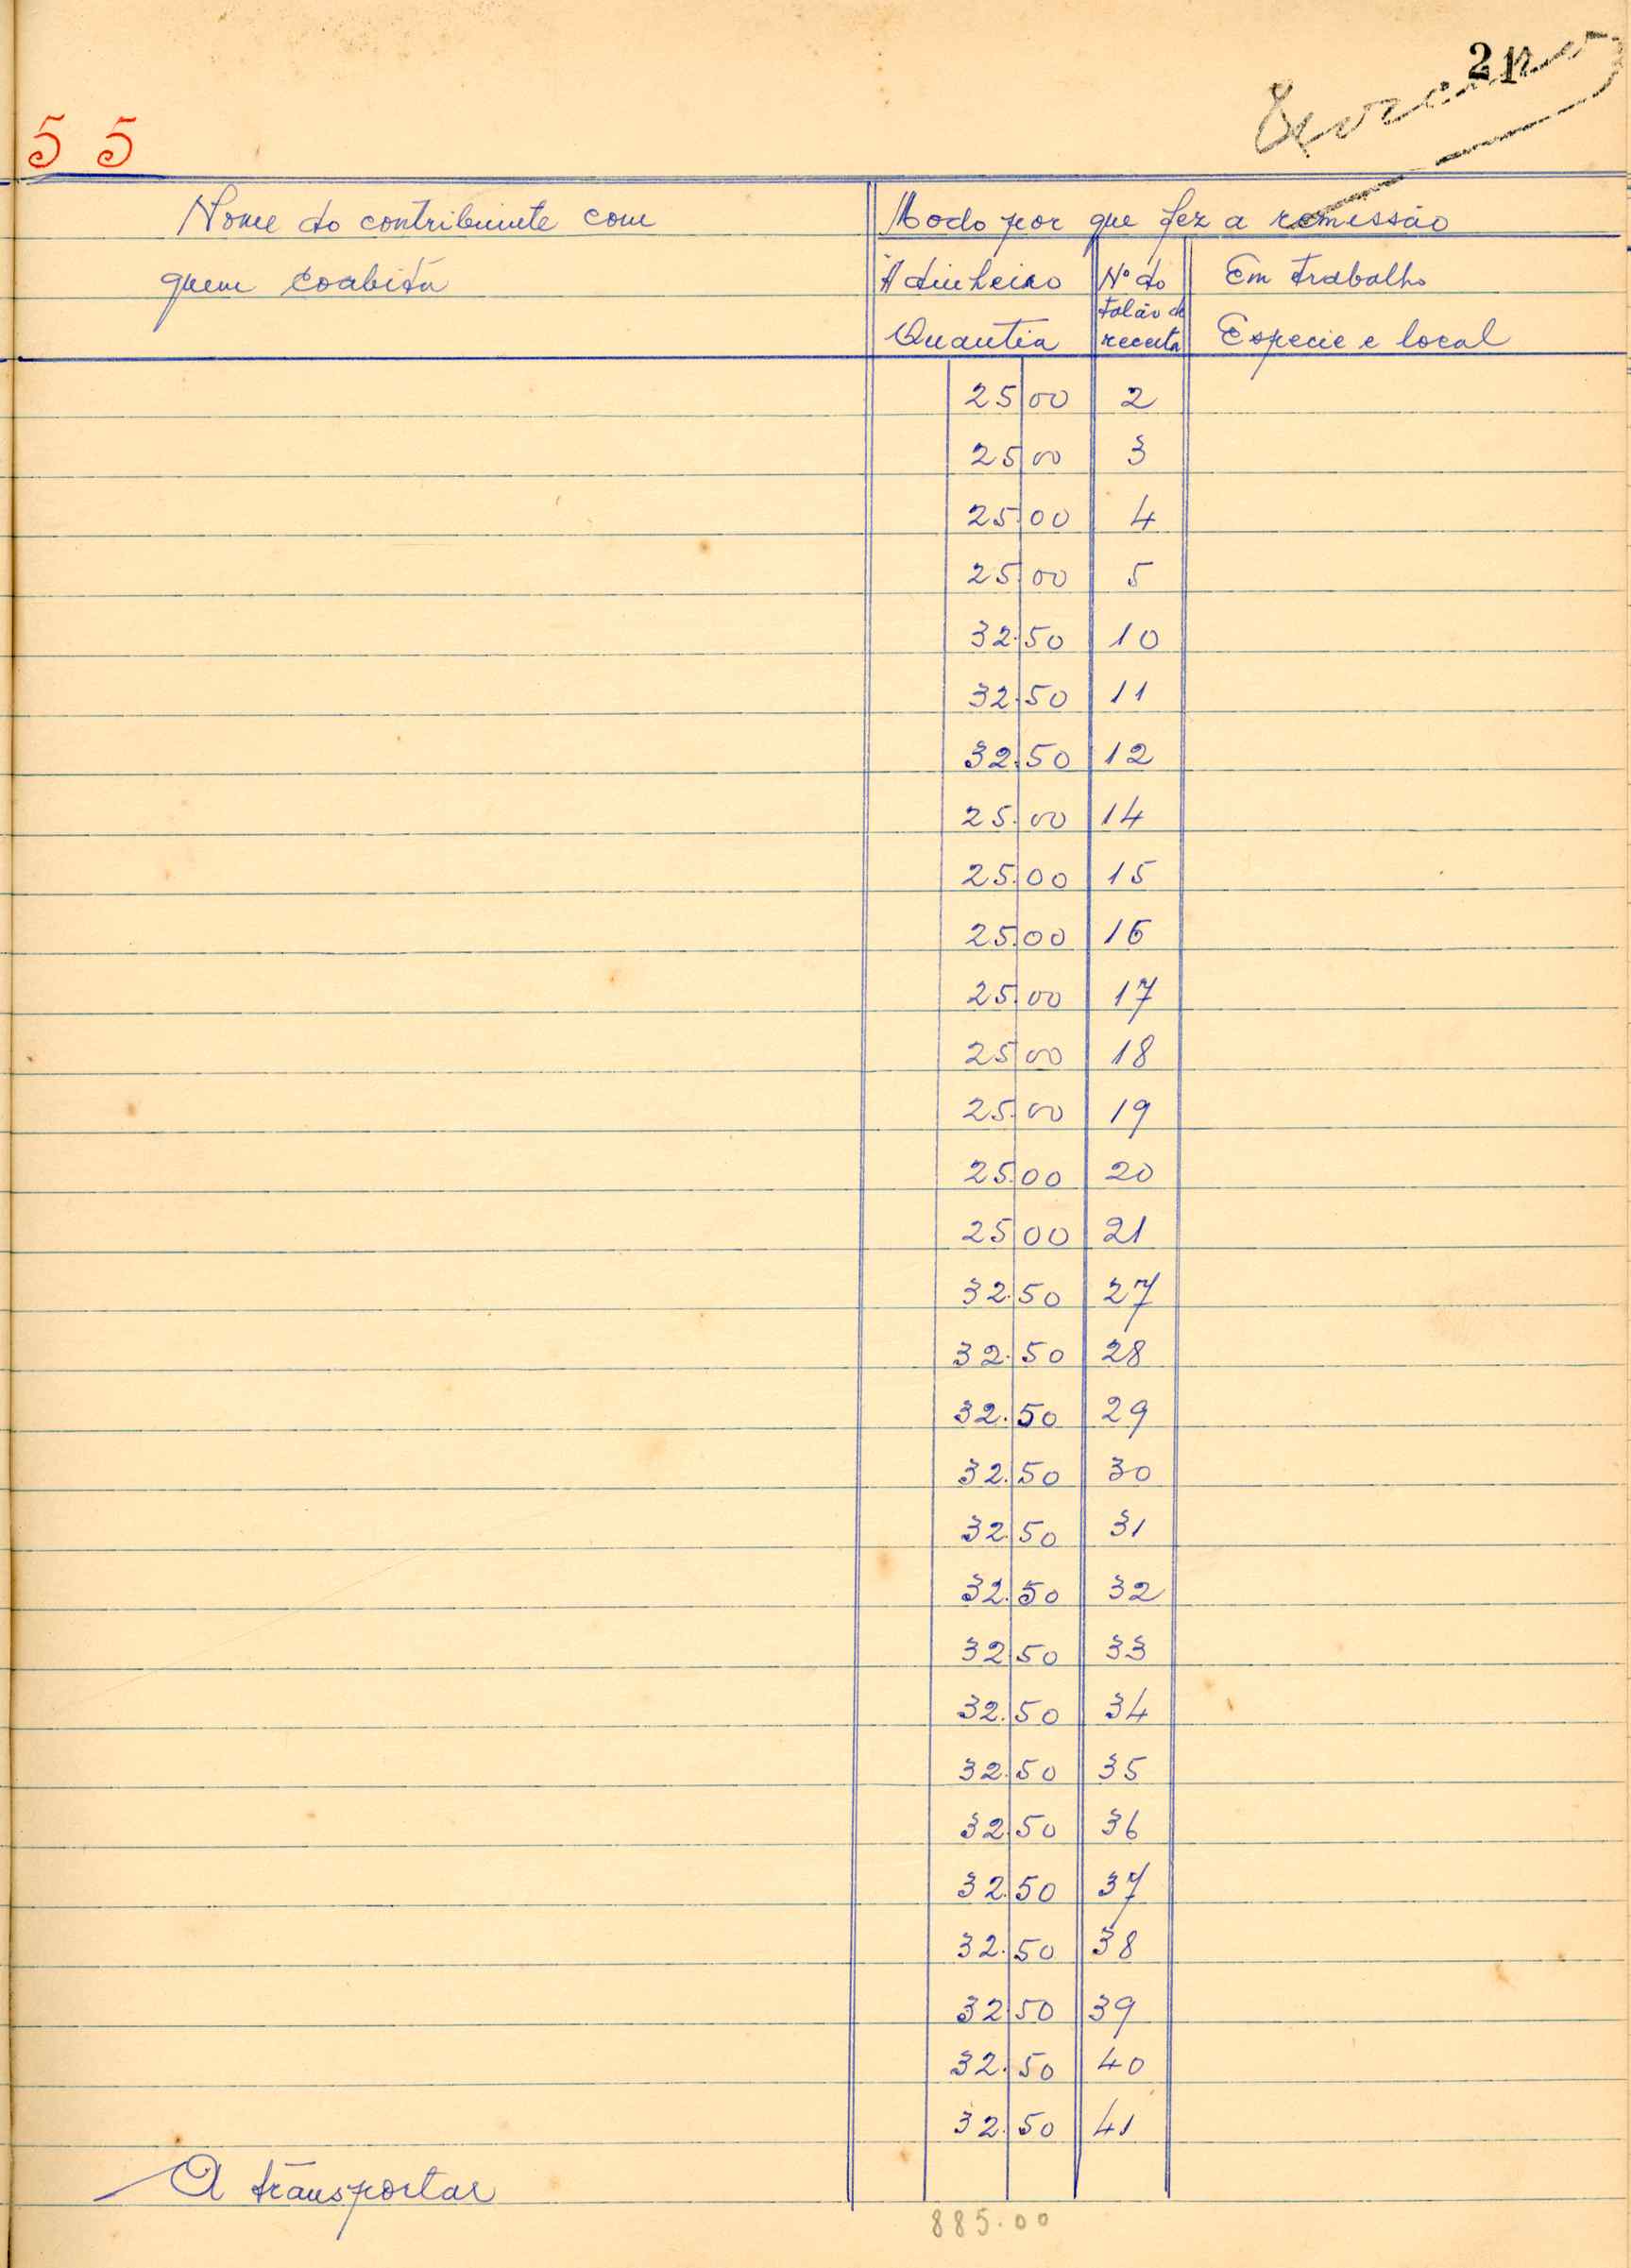 21
5 5
Nome do contribuinte com
quem coabita
Modo por que fez a remissão
A dinheiro
Quantia
Nº do
talão de
receita
Em trabalho
Especie e local
25 00 2
25 00 3
25.00 4
25 00 5
32.50 10
32.50 11
32.50 12
25.00 14
25.00 15
25.00 16
25.00 17
25 00 18
25.00 19
25.00 20
25 00 21
32.50 27
32.50 28
32.50 29
32.50 30
32.50 31
32.50 32
32 50 33
32.50 34
32.50 35
32 50 36
32.50 37
32.50 38
32 50 39
32.50 40
32.50 41
A transportar
885.00